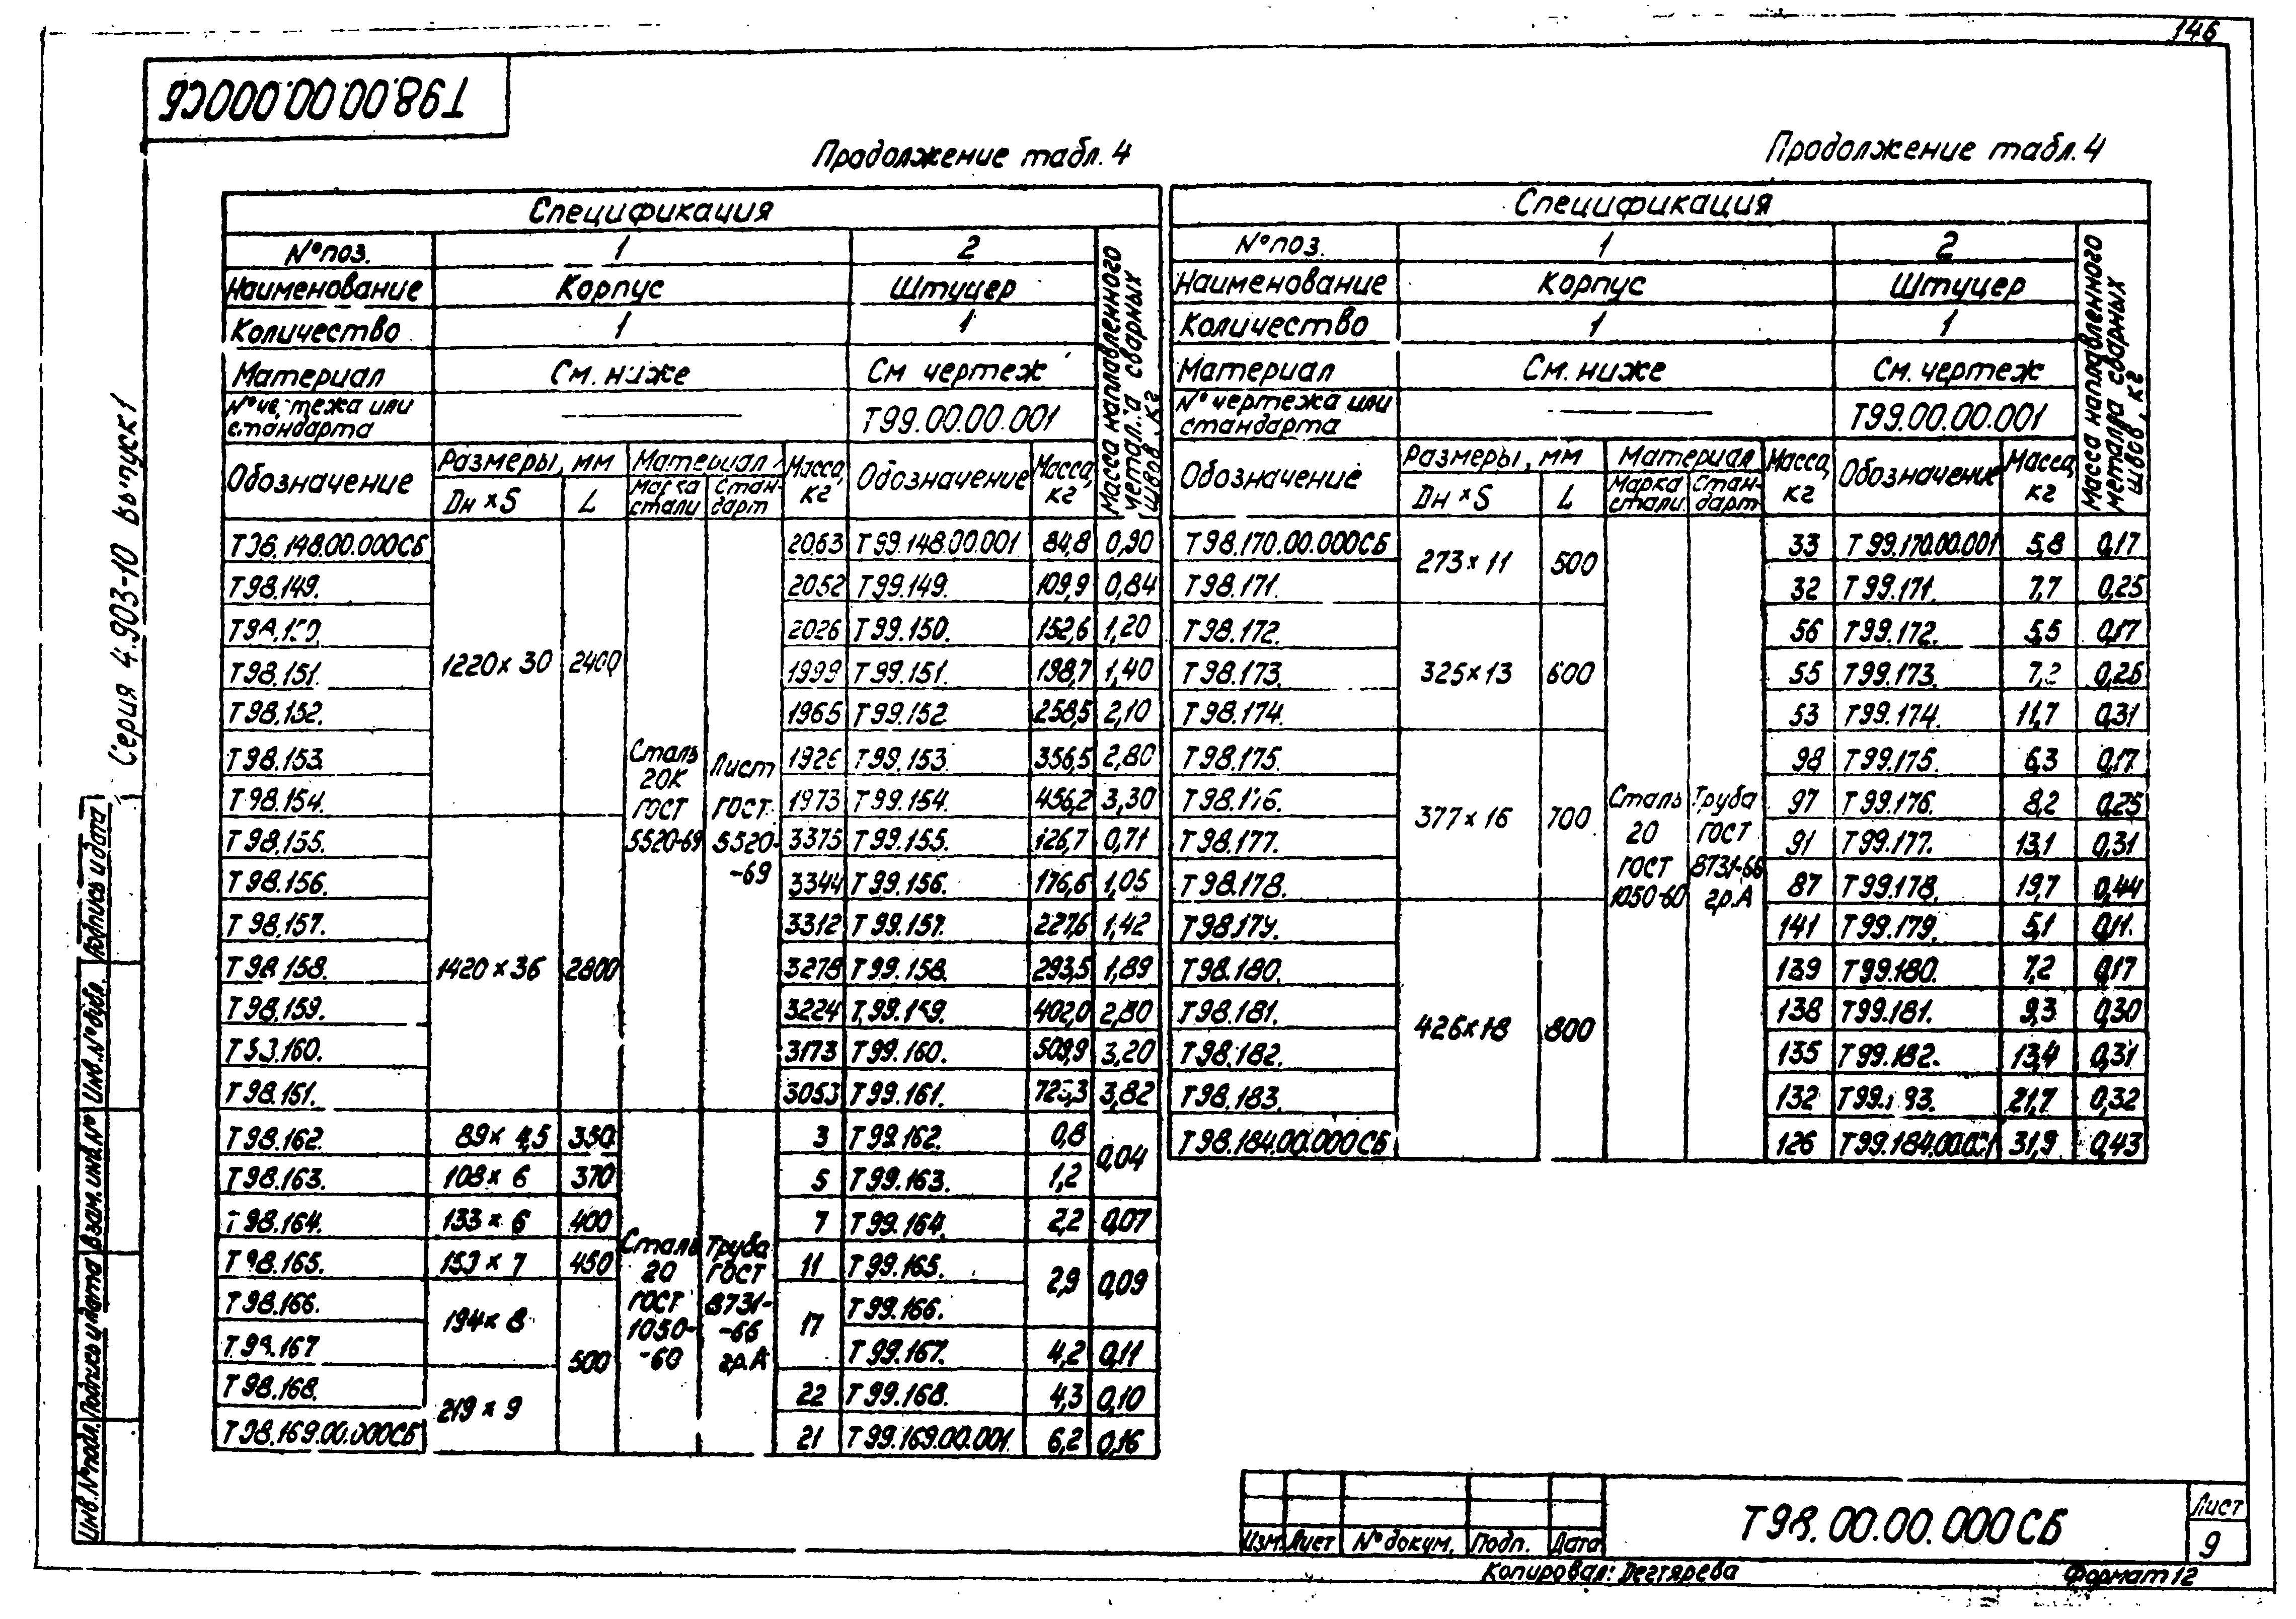 146
Т98.00.00.000СБ
Серия 4.903-10 выпуск 1
Продолжение табл. 4
Спецификация
№ поз. 1 2
Наименование Корпус Штуцер
Количество 1 1
Материал См. ниже См чертеж
№ че. тежа или стандарта ——— Т99.00.00.001
Масса наплавленного металла сварных швов, кг
Обозначение Размеры, мм Материал Масса, кг Обозначение Масса, кг
Dн × S L Марка стали Стандарт
Т98.148.00.000СБ 2063 Т99.148.00.001 84,8 0,90
Т98.149. 2052 Т99.149. 109,9 0,84
Т98.150. 2026 Т99.150. 152,6 1,20
Т98.151. 1220 × 30 2400 1999 Т99.151. 198,7 1,40
Т98.152. 1965 Т99.152 258,5 2,10
Т98.153. Сталь 20К ГОСТ 5520-69 Лист ГОСТ 5520-69 1926 Т99.153. 356,5 2,80
Т98.154. 1973 Т99.154. 456,2 3,30
Т98.155. 3375 Т99.155. 126,7 0,71
Т98.156. 3344 Т99.156. 176,6 1,05
Т98.157. 3312 Т99.157. 227,6 1,42
Т98.158. 1420 × 36 2800 3278 Т99.158. 293,5 1,89
Т98.159. 3224 Т.99.159. 402,0 2,80
Т98.160. 3173 Т99.160. 509,9 3,20
Т98.151. 3053 Т99.161. 3,82
Т98.162. 89 × 4,5 350 3 Т99.162. 0,8 0,04
Т98.163. 108 × 6 370 5 Т99.163. 1,2
Т98.164. 133 × 6 400 7 Т99.164. 2,2 0,07
Т98.165. 159 × 7 450 Сталь 20 ГОСТ 1050-60 Труба ГОСТ 8731-66 гр.А 11 Т99.165. 2,9 0,09
Т98.166. 194 × 8 500 17 Т99.166.
Т98.167 Т99.167. 4,2 0,11
Т98.168. 219 × 9 22 Т99.168. 4,3 0,10
Т98.169.00.000СБ 21 Т99.169.00.001. 6,2 0,16
Продолжение табл. 4
Спецификация
№ поз. 1 2
Наименование Корпус Штуцер
Количество 1 1
Материал См. ниже См. чертеж
№ чертежа или стандарта ——— Т99.00.00.001
Масса наплавленного металла сварных швов, кг
Обозначение Размеры, мм Материал Масса, кг Обозначение Масса, кг
Dн × S L Марка стали. Стандарт
Т98.170.00.000СБ 273 × 11 500 33 Т99.170.00.001 5,8 0,17
Т98.171. 32 Т99.171. 7,7 0,25
Т98.172. 56 Т99.172. 5,5 0,17
Т98.173. 325 × 13 600 55 Т99.173. 7,2 0,26
Т98.174. 53 Т99.174. 11,7 0,31
Т98.175. 98 Т99.175. 6,3 0,17
Т98.176. 377 × 16 700 Сталь 20 ГОСТ 1050-60 Труба ГОСТ 8731-66 гр.А 97 Т99.176. 8,2 0,25
Т98.177. 91 Т99.177. 13,1 0,31
Т98.178. 87 Т99.178. 19,7 0,44
Т98.179. 141 Т99.179. 5,1 0,11.
Т98.180. 139 Т99.180. 7,2 0,17
Т98.181. 426 × 18 800 138 Т99.181. 9,3 0,30
Т98.182. 135 Т99.182. 13,4 0,31
Т98.183. 132 Т99.183. 21,7 0,32
Т98.184.00.000СБ 126 Т99.184.00.001 31,9 0,43
Инв. № подл. Подпись и дата Взам. инв. № Инв. № дубл. Подпись и дата
Изм. Лист № докум. Подп. Дата
Т98.00.00.000СБ
Лист
9
Копировал: Дегтярева
Формат 12